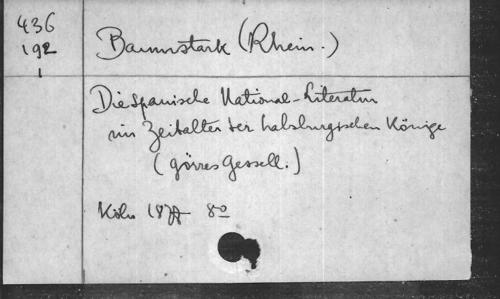 436
192
1
Baumstark (Rhein.)
Die Spanische National-Literatur
im Zeitalter der habsburgischen Könige
(görres Gesell.)
Köln 1877 8º